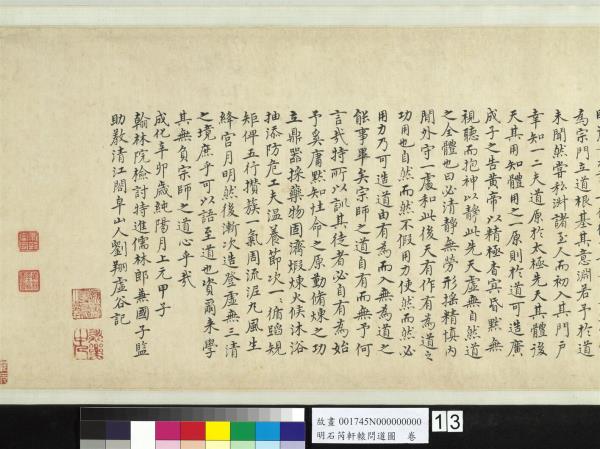 為宗門立道根基其意淵若予於道
未聞然嘗私淑諸至人而初入其門戶
幸知一二夫道原於太極先天其體後
天其用知體用之一原則於道可造廣
成子之告黃帝以精極杳冥昏默無
視聽而抱神以靜此先天虛無自然道
之全體也曰必清靜無勞形搖精慎內
閉外守一處和此後天有作有為道之
功用也自然而然不假用力使然而然必
用力乃可造道由有為而入無為道之
能事畢矣宗師之道自有而無予何
言哉特所以訓其徒者必自有為始
予奚庸默知性命之原動脩煉之功
立鼎器採藥物固濟煆煉火候沐浴
抽添防危工夫溫養節次一一循蹈規
矩俾五行攢族一氣周流泥丸風生
絳宮月明然後漸次造登虛無三清
之境庶乎可以語至道也資爾來學
其無負宗師之道心乎哉
成化辛卯歲純陽月上元甲子
翰林院檢討特進儒林郎兼國子監
助教清江閤阜山人劉翔虛谷記
故畫 001745N000000000
明石芮軒轅問道圖 卷
13